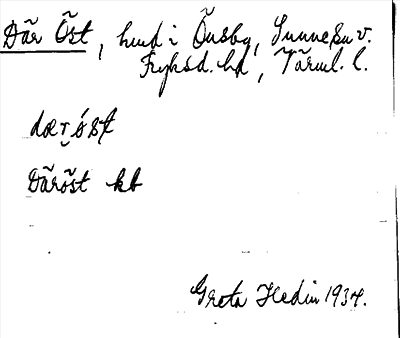 Där Öst, hmd i Önsby, Sunne sn v.
Fryksd. hd, Värml. l.
dærö́st
Däröst kb
Greta Hedin 1934.